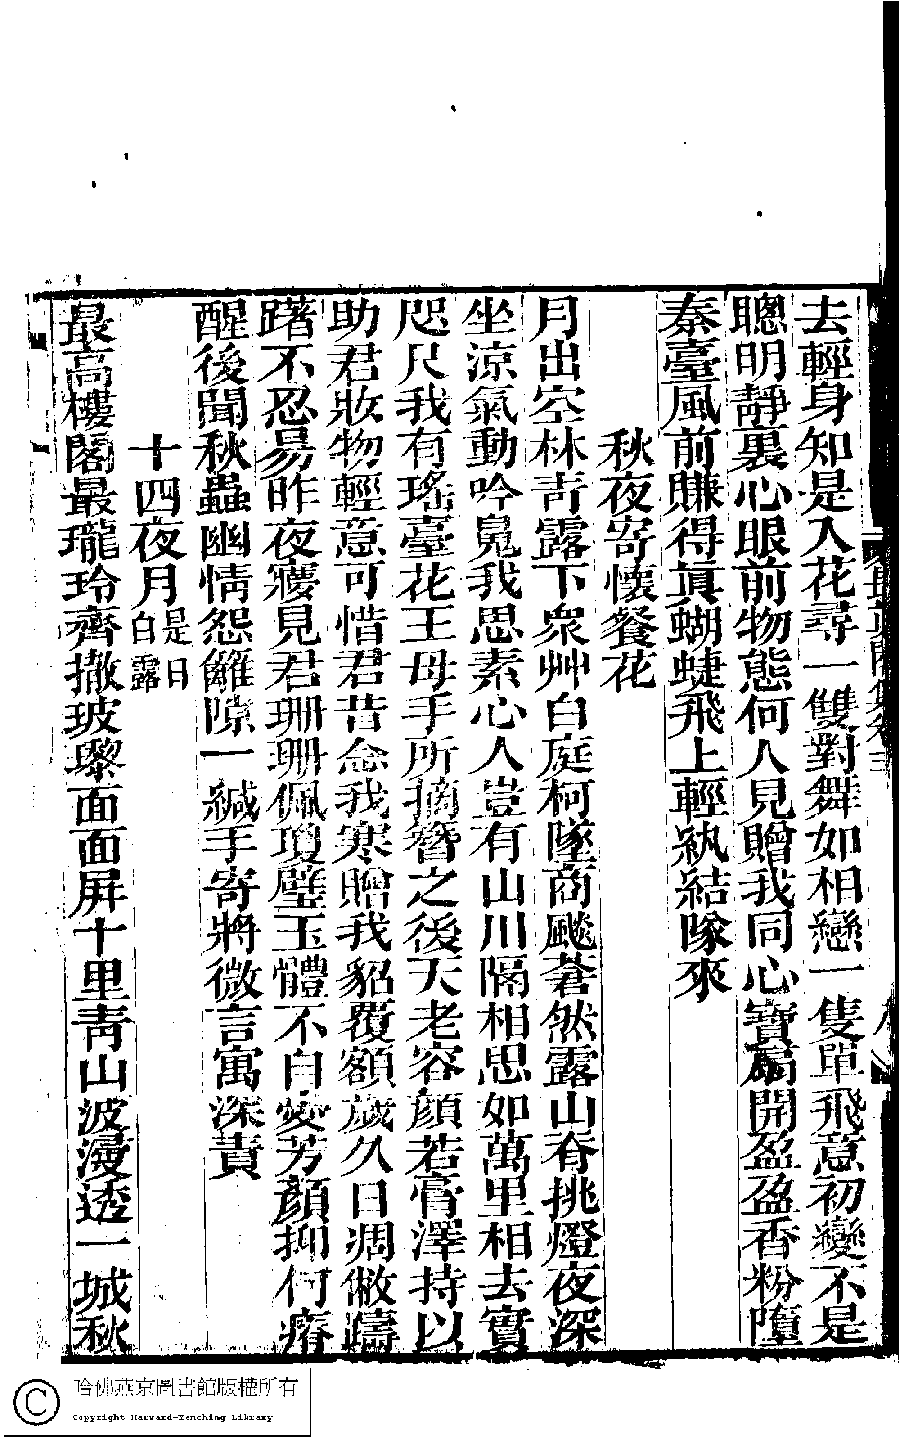 去輕身知是入花尋一雙對舞如相戀一隻單飛意初變不是
聰明靜裏心眼前物態何人見贈我同心寶扇開盈盈香粉墮
秦臺風前賺得眞蝴蜨飛上輕紈結隊來
秋夜寄懷餐花
月出空林靑露下衆艸白庭柯墜商飈蒼然露山脊挑燈夜深
坐涼氣動吟㲋我思素心人豈有山川隔相思如萬里相去實
咫尺我有瑤臺花王母手所摘簪之後天老容顏若膏澤持以
助君妝物輕意可惜君昔念我寒贈我貂覆額歲久日凋敝躊
躇不忍易昨夜寢見君珊珊佩瓊璧玉體不自變芳顏抑何瘠
醒後聞秋蟲幽情怨籬隙一緘手寄將微言寓深責
十四夜月是日白露
最高樓閣最瓏玲齊撤玻瓈面面屏十里靑山波漫透一城秋
哈佛燕京圖書館版權所有
Copyright Harvard-Yenching Library